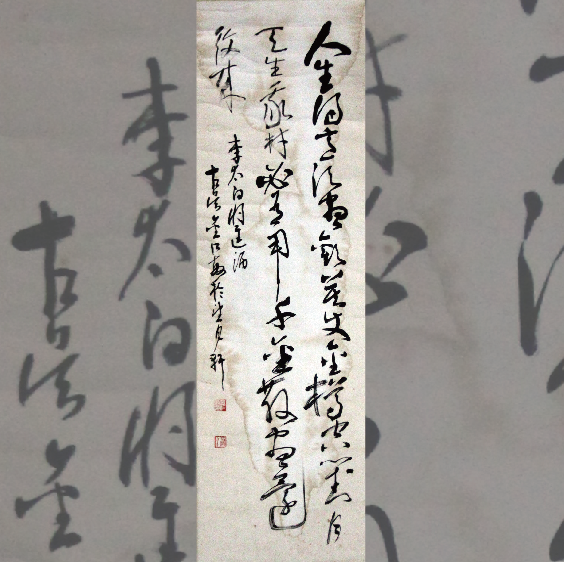 人生得意須盡歡莫使金樽空對月
天生我材必有用千金散盡還
復來
李太白将進酒
於 月軒